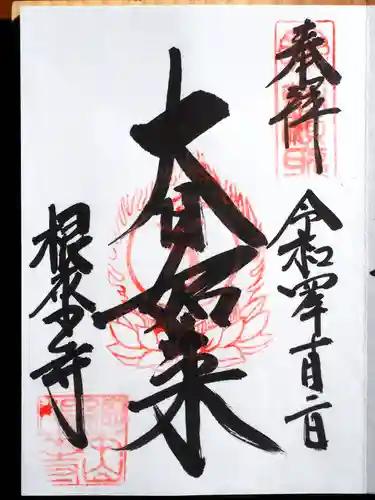 奉拝
令和四年十一月二日
大日如来
根来寺